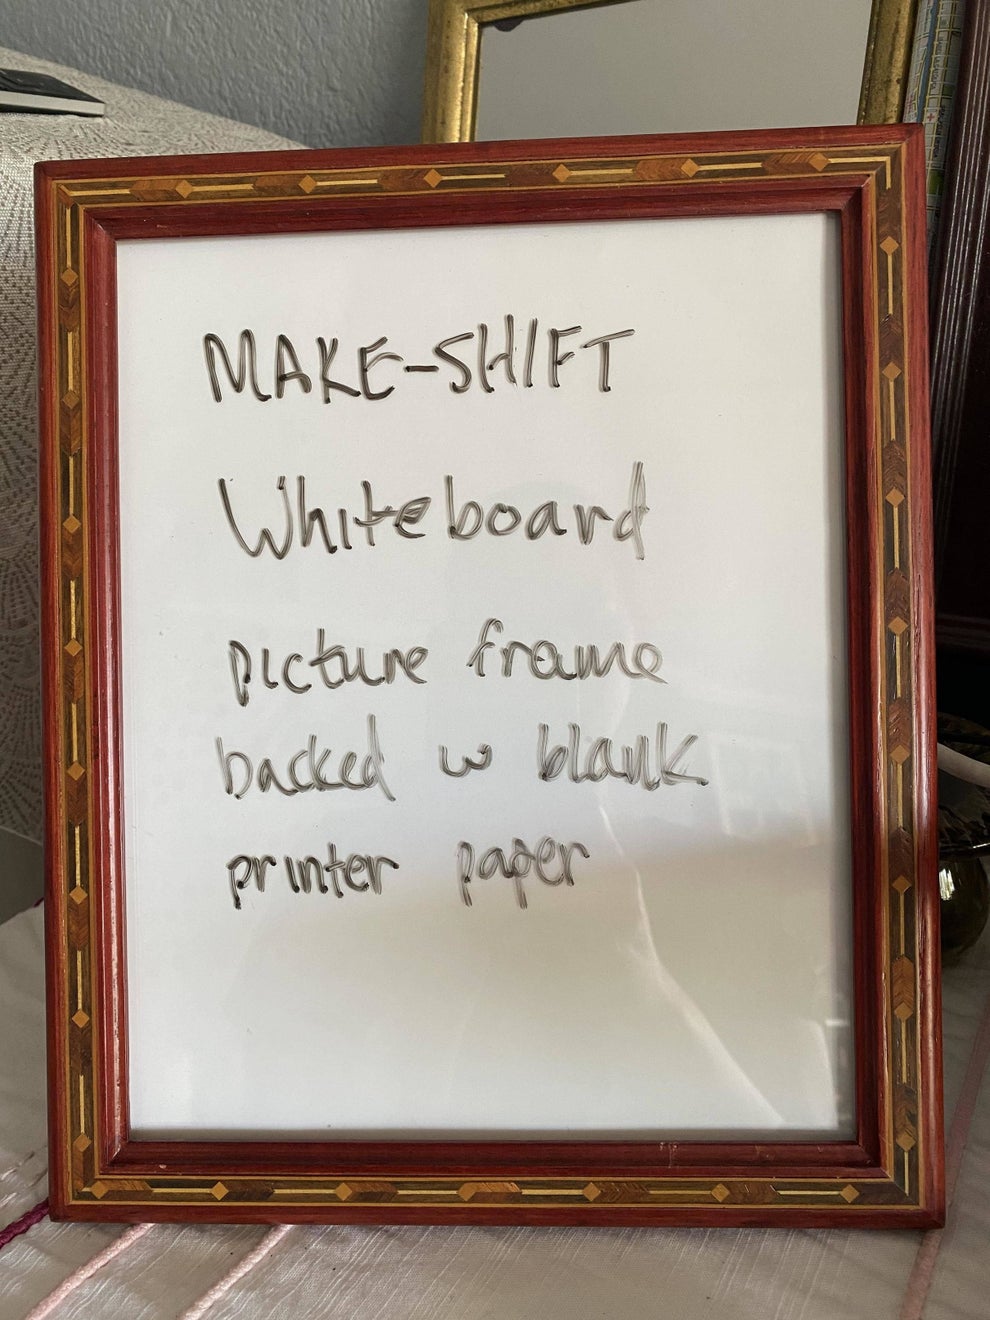 MAKE-SHIFT
Whiteboard
picture frame
backed w blank
printer paper